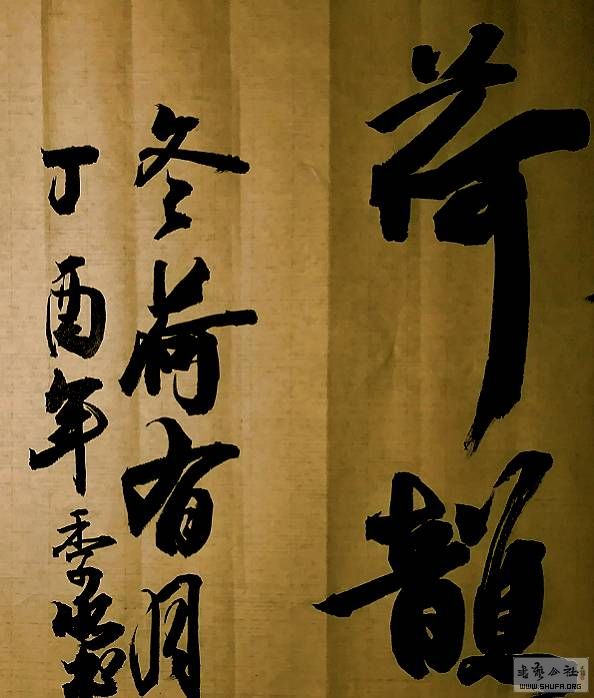 荷韻
冬荷有月
丁酉年季
书艺公社
WWW.SHUFA.ORG